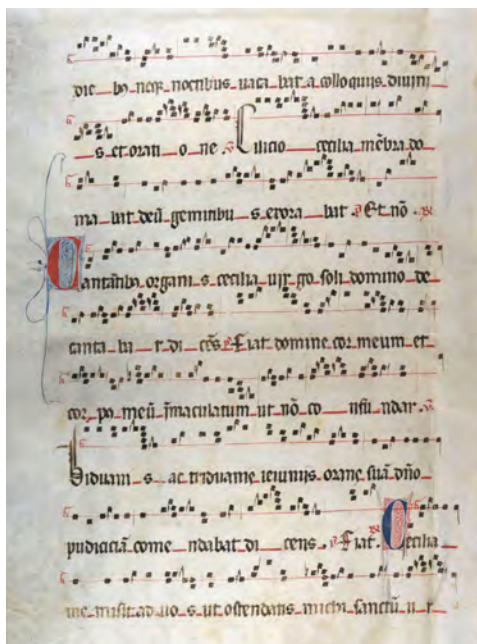 die bꝯ neqꝫ noctibus uaca bat a colloquiis diuini
s et orati o ne. ℣ Cilicio cecilia mēbra do
ma bat deū gemitibu s exora bat. Et nō.
Cantātibꝯ organi s cecilia uir go soli domino de
canta ba t di cēs Fiat domine cor meum et
cor pꝯ meū īmaculatum ut nō co nfu ndar. ℣
Biduani s ac triduanis ieiuniis orans suā dn̄o
pudiciciā come ndabat di cens. Fiat. Cecilia
me misit ad uo s ut ostendatis michi sanctū u r